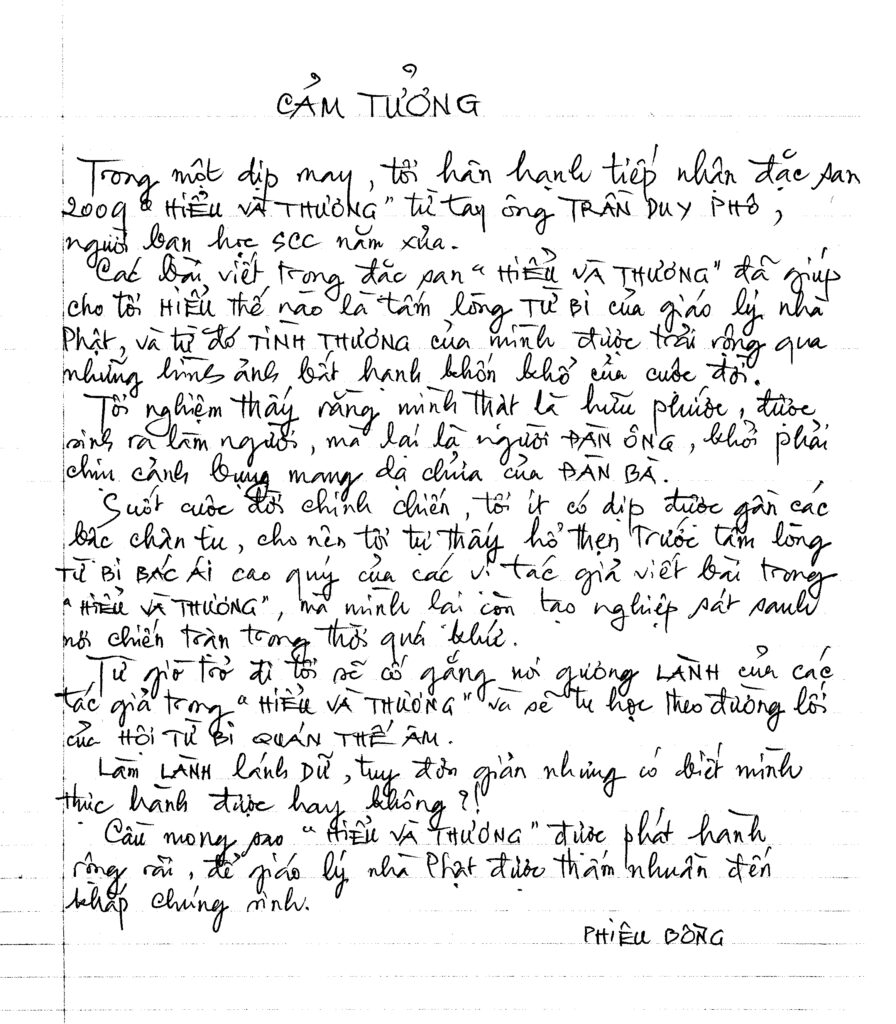 CẢM TƯỞNG
Trong một dịp may, tôi hân hạnh tiếp nhận đặc san
2009 "HIỂU VÀ THƯƠNG" từ tay ông TRẦN DUY PHÔ,
người bạn học SCC năm xưa.
Các bài viết trong đặc san "HIỂU VÀ THƯƠNG" đã giúp
cho tôi HIỂU thế nào là tấm lòng TỪ BI của giáo lý nhà
Phật, và từ đó TÌNH THƯƠNG của mình được trải rộng qua
những hình ảnh bất hạnh khốn khổ của cuộc đời.
Tôi nghiệm thấy rằng mình thật là hữu phước, được
sinh ra làm người, mà lại là người ĐÀN ÔNG, khỏi phải
chịu cảnh bụng mang dạ chửa của ĐÀN BÀ.
Suốt cuộc đời chinh chiến, tôi ít có dịp được gần các
bậc chân tu, cho nên tôi tự thấy hổ thẹn trước tấm lòng
TỪ BI BÁC ÁI cao quý của các vị tác giả viết bài trong
"HIỂU VÀ THƯƠNG", mà mình lại còn tạo nghiệp sát sanh
nơi chiến trận trong thời quá khứ.
Từ giờ trở đi tôi sẽ cố gắng noi gương LÀNH của các
tác giả trong "HIỂU VÀ THƯƠNG" và sẽ tu học theo đường lối
của HỘI TỪ BI QUÁN THẾ ÂM.
Làm LÀNH lánh DỮ, tuy đơn giản nhưng có biết mình
thực hành được hay không?!
Cầu mong sao "HIỂU VÀ THƯƠNG" được phát hành
rộng rãi, để giáo lý nhà Phật được thấm nhuần đến
khắp chúng sinh.
PHIÊU BỒNG